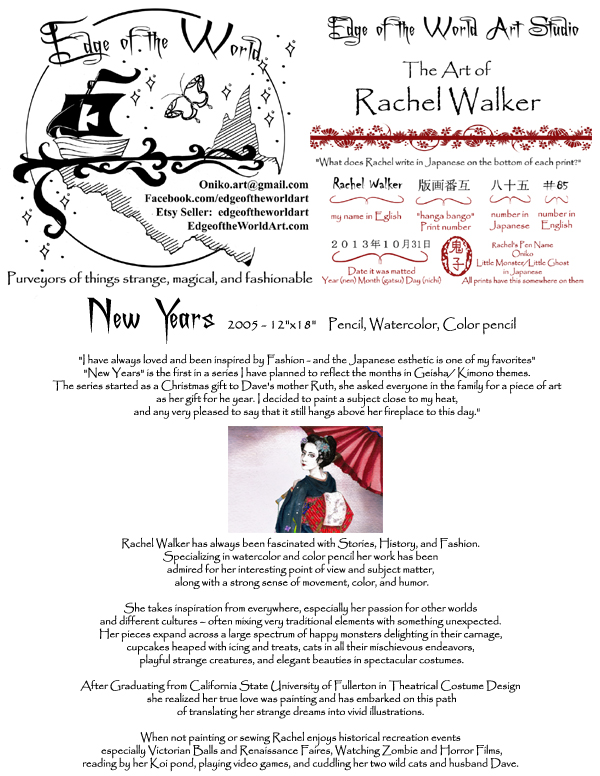 Edge of the World
Oniko.art@gmail.com
Facebook.com/edgeoftheworldart
Etsy Seller: edgeoftheworldart
EdgeoftheWorldArt.com
Purveyors of things strange, magical, and fashionable
Edge of the World Art Studio
The Art of
Rachel Walker
"What does Rachel write in Japanese on the bottom of each print?"
Rachel Walker 版画番互 八十五 #85
my name in Eglish "hanga bango" Print number number in Japanese number in English
2013年10月31日
Date it was matted
Year (nen) Month (gatsu) Day (nichi)
鬼子
Rachel's Pen Name
Oniko
Little Monster/Little Ghost
in Japanese
All prints have this somewhere on them
New Years 2005 - 12"x18" Pencil, Watercolor, Color pencil
"I have always loved and been inspired by Fashion - and the Japanese esthetic is one of my favorites"
"New Years" is the first in a series I have planned to reflect the months in Geisha/ Kimono themes.
The series started as a Christmas gift to Dave's mother Ruth, she asked everyone in the family for a piece of art
as her gift for he year. I decided to paint a subject close to my heat,
and any very pleased to say that it still hangs above her fireplace to this day."
Rachel Walker has always been fascinated with Stories, History, and Fashion.
Specializing in watercolor and color pencil her work has been
admired for her interesting point of view and subject matter,
along with a strong sense of movement, color, and humor.
She takes inspiration from everywhere, especially her passion for other worlds
and different cultures – often mixing very traditional elements with something unexpected.
Her pieces expand across a large spectrum of happy monsters delighting in their carnage,
cupcakes heaped with icing and treats, cats in all their mischievous endeavors,
playful strange creatures, and elegant beauties in spectacular costumes.
After Graduating from California State University of Fullerton in Theatrical Costume Design
she realized her true love was painting and has embarked on this path
of translating her strange dreams into vivid illustrations.
When not painting or sewing Rachel enjoys historical recreation events
especially Victorian Balls and Renaissance Faires, Watching Zombie and Horror Films,
reading by her Koi pond, playing video games, and cuddling her two wild cats and husband Dave.